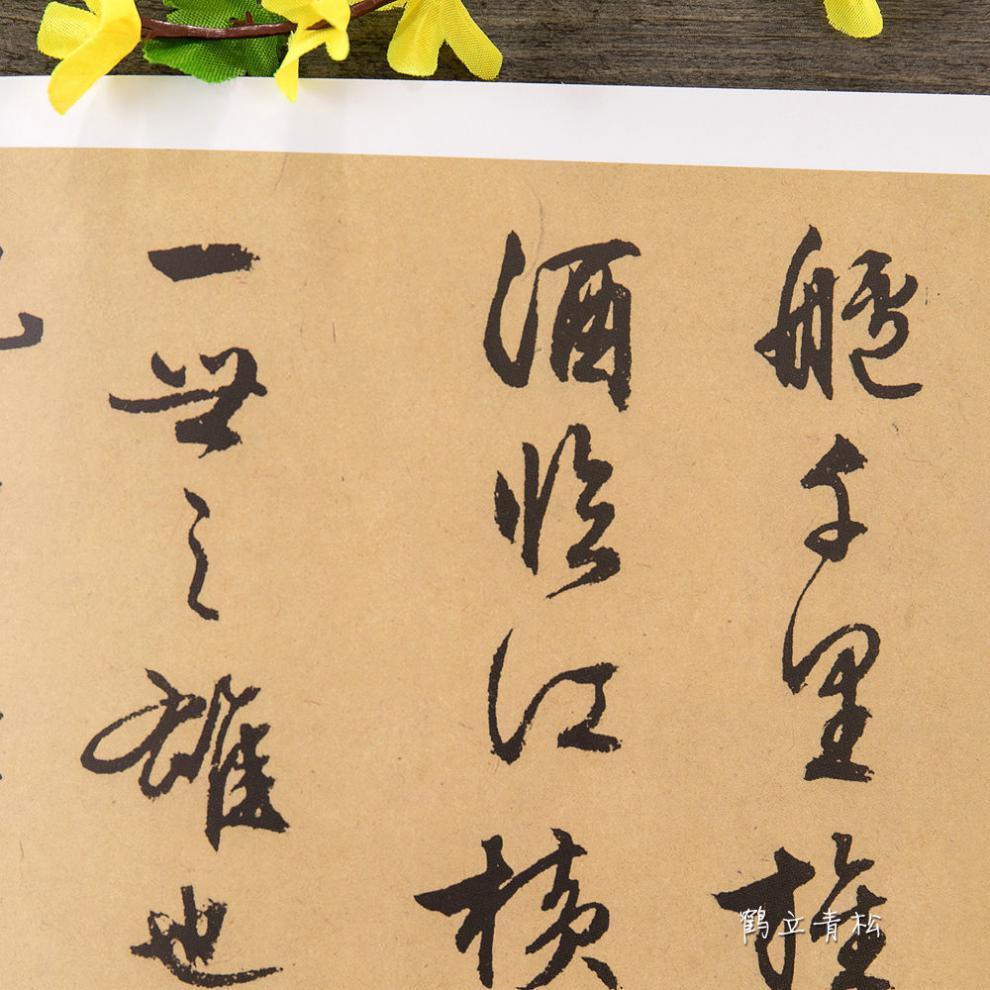 艫千里旌
酒臨江橫
一世之雄也
鹤立青松